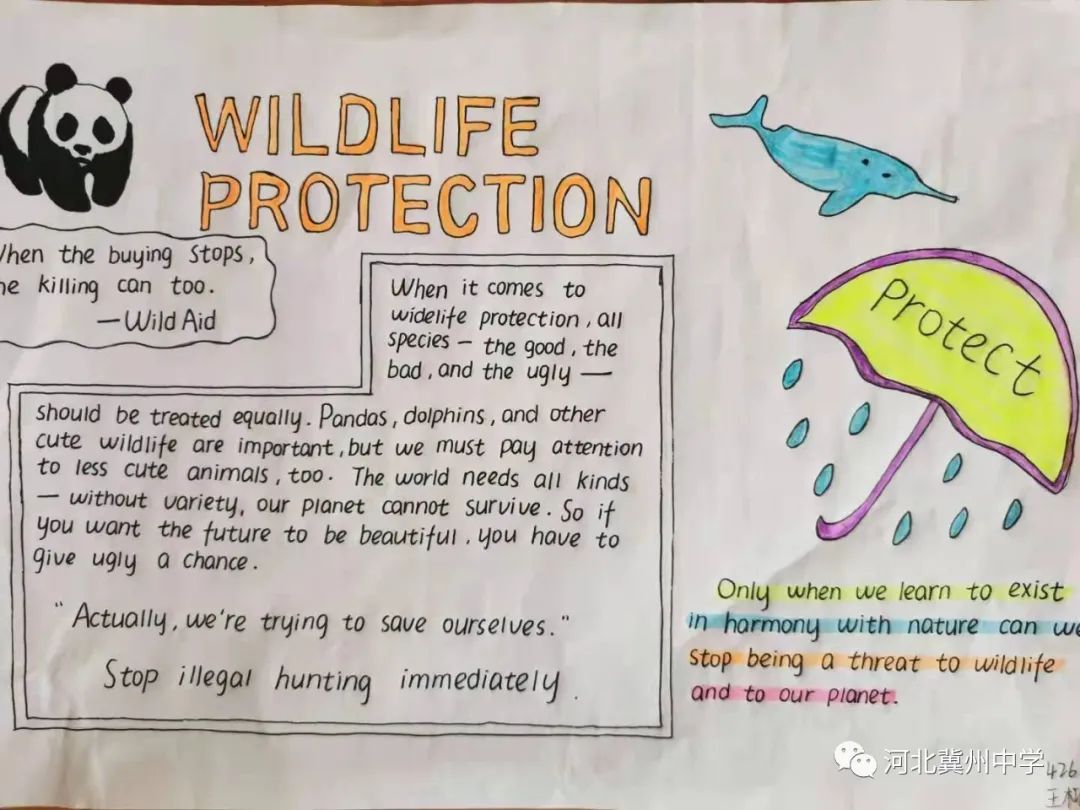 WILDLIFE
PROTECTION
When the buying stops,
he killing can too.
—Wild Aid
When it comes to
widelife protection, all
species — the good, the
bad, and the ugly —
should be treated equally. Pandas, dolphins, and other
cute wildlife are important, but we must pay attention
to less cute animals, too. The world needs all kinds
— without variety, our planet cannot survive. So if
you want the future to be beautiful, you have to
give ugly a chance.
"Actually, we're trying to save ourselves."
Stop illegal hunting immediately.
protect
Only when we learn to exist
in harmony with nature can we
stop being a threat to wildlife
and to our planet.
河北冀州中学
426
王